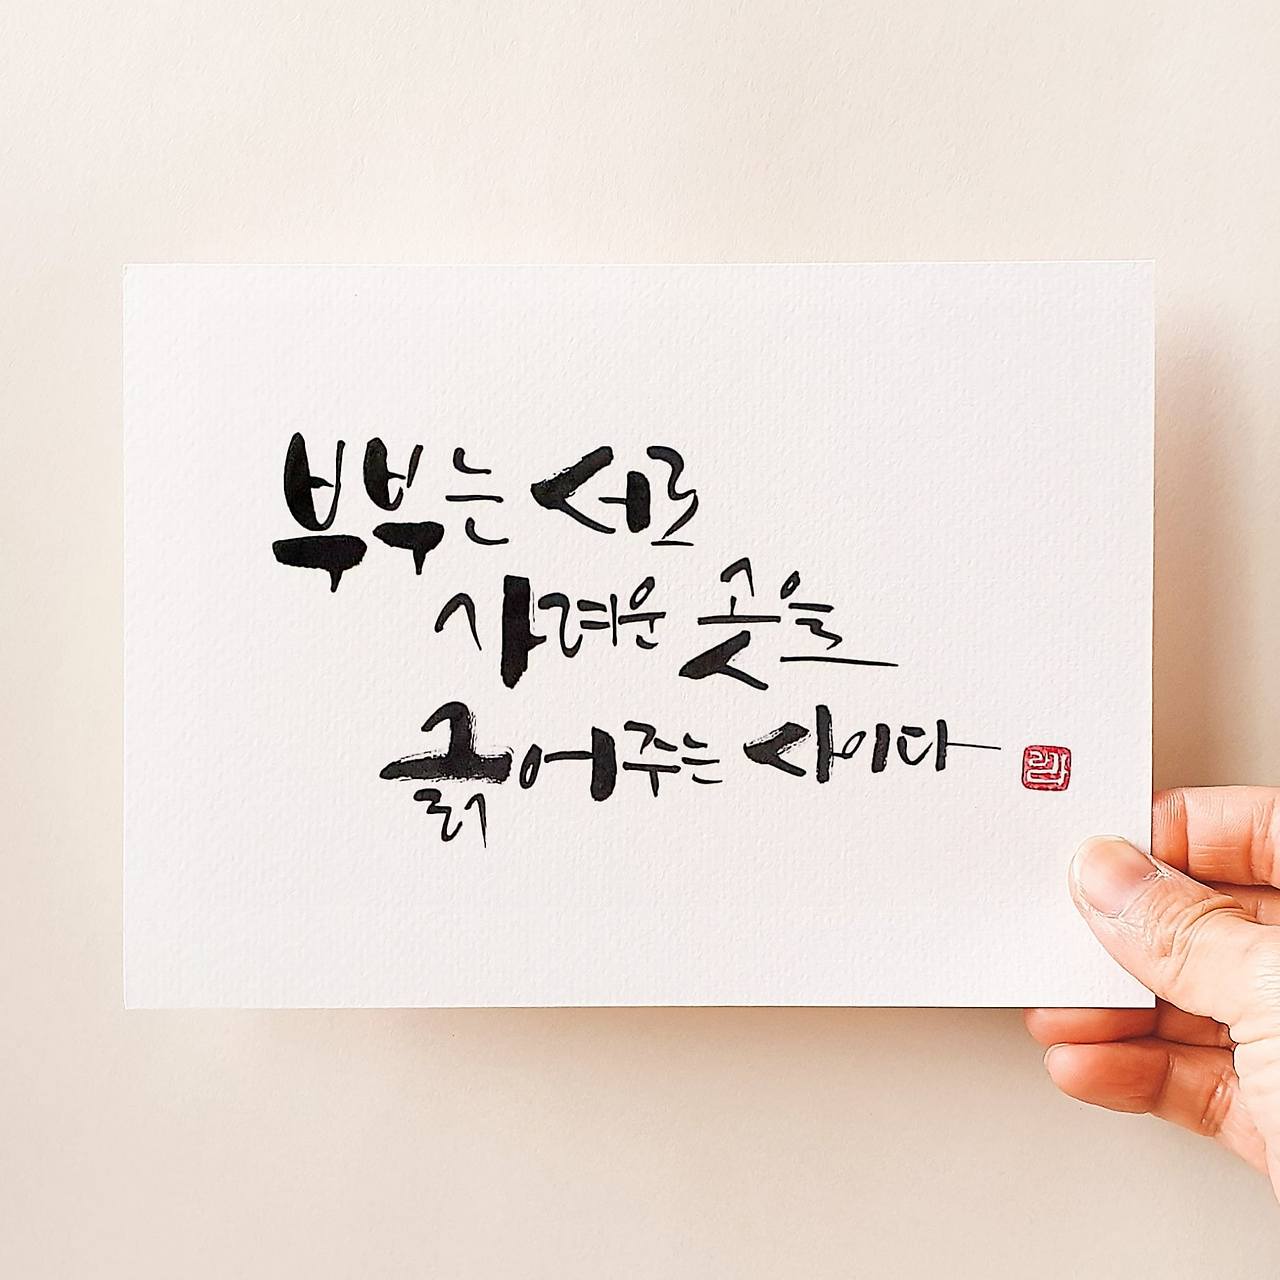 부부는 서로
가려운 곳을
긁어주는 사이다